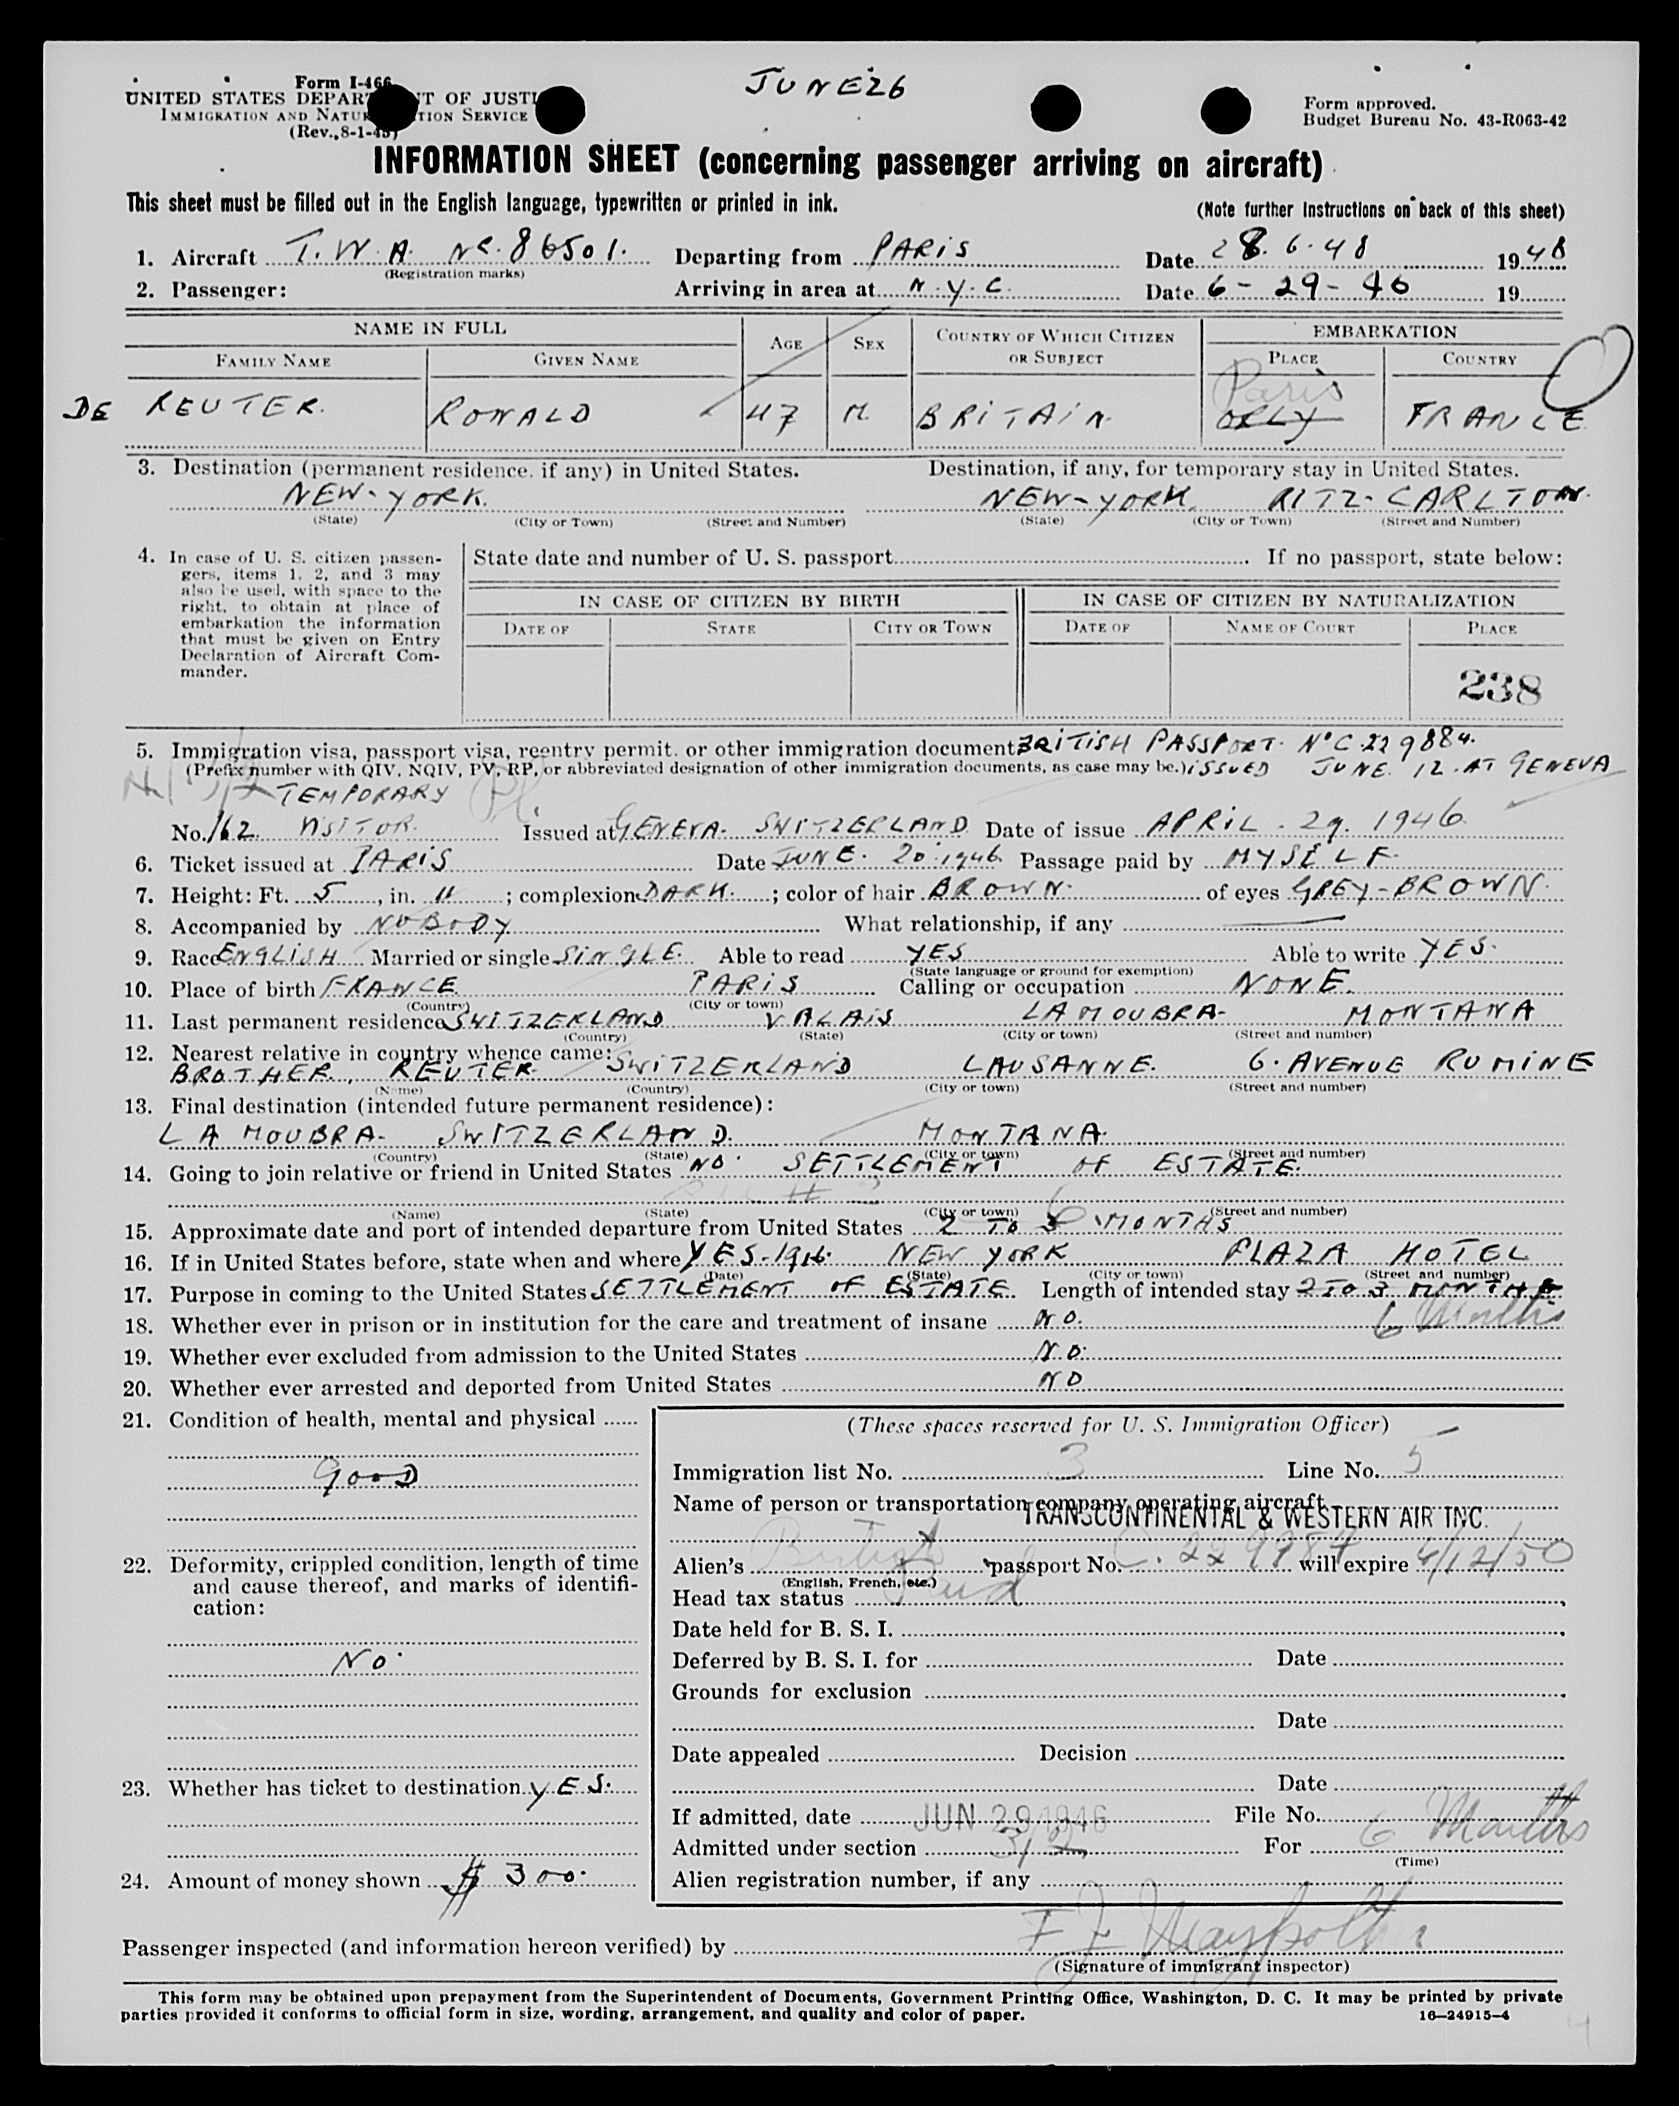 JUNE 26
Form I-466
UNITED STATES DEPARTMENT OF JUSTICE
IMMIGRATION AND NATURALIZATION SERVICE
(Rev. 8-1-45)
Form approved.
Budget Bureau No. 43-R063-42
INFORMATION SHEET (concerning passenger arriving on aircraft)
This sheet must be filled out in the English language, typewritten or printed in ink.
(Note further Instructions on back of this sheet)
1. Aircraft T.W.A. Nc. 86501. Departing from PARIS Date 28.6.48 1948
(Registration marks)
2. Passenger: Arriving in area at N.Y.C. Date 6-29-46 19
NAME IN FULL AGE SEX COUNTRY OF WHICH CITIZEN OR SUBJECT EMBARKATION
FAMILY NAME GIVEN NAME PLACE COUNTRY
Paris
DE REUTER. RONALD 47 M. BRITAIN. ORLY FRANCE
3. Destination (permanent residence, if any) in United States. Destination, if any, for temporary stay in United States.
NEW-YORK. NEW-YORK. RITZ-CARLTON.
(State) (City or Town) (Street and Number) (State) (City or Town) (Street and Number)
4. In case of U. S. citizen passen-
gers, items 1, 2, and 3 may
also be used, with space to the
right, to obtain at place of
embarkation the information
that must be given on Entry
Declaration of Aircraft Com-
mander.
State date and number of U. S. passport. If no passport, state below:
IN CASE OF CITIZEN BY BIRTH IN CASE OF CITIZEN BY NATURALIZATION
DATE OF STATE CITY OR TOWN DATE OF NAME OF COURT PLACE
238
5. Immigration visa, passport visa, reentry permit, or other immigration document BRITISH PASSPORT. No C.229884.
(Prefix number with QIV, NQIV, PV, RP, or abbreviated designation of other immigration documents, as case may be.) ISSUED JUNE. 12. AT GENEVA
TEMPORARY
No. 162. VISITOR. Issued at GENEVA. SWITZERLAND Date of issue APRIL. 29. 1946.
6. Ticket issued at PARIS Date JUNE. 20.1946. Passage paid by MYSELF.
7. Height: Ft. 5, in. 11; complexion DARK.; color of hair BROWN. of eyes GREY-BROWN.
8. Accompanied by NOBODY What relationship, if any
9. Race ENGLISH Married or single SINGLE. Able to read YES Able to write YES.
(State language or ground for exemption)
10. Place of birth FRANCE PARIS Calling or occupation NONE.
(Country) (City or town)
11. Last permanent residence SWITZERLAND VALAIS LA MOUBRA- MONTANA
(Country) (State) (City or town) (Street and number)
12. Nearest relative in country whence came:
BROTHER. REUTER. SWITZERLAND LAUSANNE. 6. AVENUE RUMINE
(Name) (Country) (City or town) (Street and number)
13. Final destination (intended future permanent residence):
LA MOUBRA- SWITZERLAND. MONTANA.
(Country) (State) (City or town) (Street and number)
14. Going to join relative or friend in United States NO. SETTLEMENT OF ESTATE.
(Name) (State) (City or town) (Street and number)
15. Approximate date and port of intended departure from United States 2 TO 3 MONTHS
16. If in United States before, state when and where YES-1916. NEW YORK PLAZA HOTEL
(Date) (State) (City or town) (Street and number)
17. Purpose in coming to the United States SETTLEMENT OF ESTATE. Length of intended stay 2 TO 3 MONTHS
6 Months
18. Whether ever in prison or in institution for the care and treatment of insane NO.
19. Whether ever excluded from admission to the United States NO.
20. Whether ever arrested and deported from United States NO
21. Condition of health, mental and physical
GOOD
22. Deformity, crippled condition, length of time
and cause thereof, and marks of identifi-
cation:
NO.
23. Whether has ticket to destination YES.
24. Amount of money shown $ 300.
(These spaces reserved for U. S. Immigration Officer)
Immigration list No. 3 Line No. 5
Name of person or transportation company operating aircraft
TRANSCONTINENTAL & WESTERN AIR INC.
Alien's British passport No. C. 229984 will expire 6/12/50
(English, French, etc.)
Head tax status Paid
Date held for B. S. I.
Deferred by B. S. I. for Date
Grounds for exclusion
Date
Date appealed Decision
Date
If admitted, date JUN 29 1946 File No.
Admitted under section 3/2 For 6 Months
(Time)
Alien registration number, if any
Passenger inspected (and information hereon verified) by
(Signature of immigrant inspector)
This form may be obtained upon prepayment from the Superintendent of Documents, Government Printing Office, Washington, D. C. It may be printed by private
parties provided it conforms to official form in size, wording, arrangement, and quality and color of paper.
16—24915-4